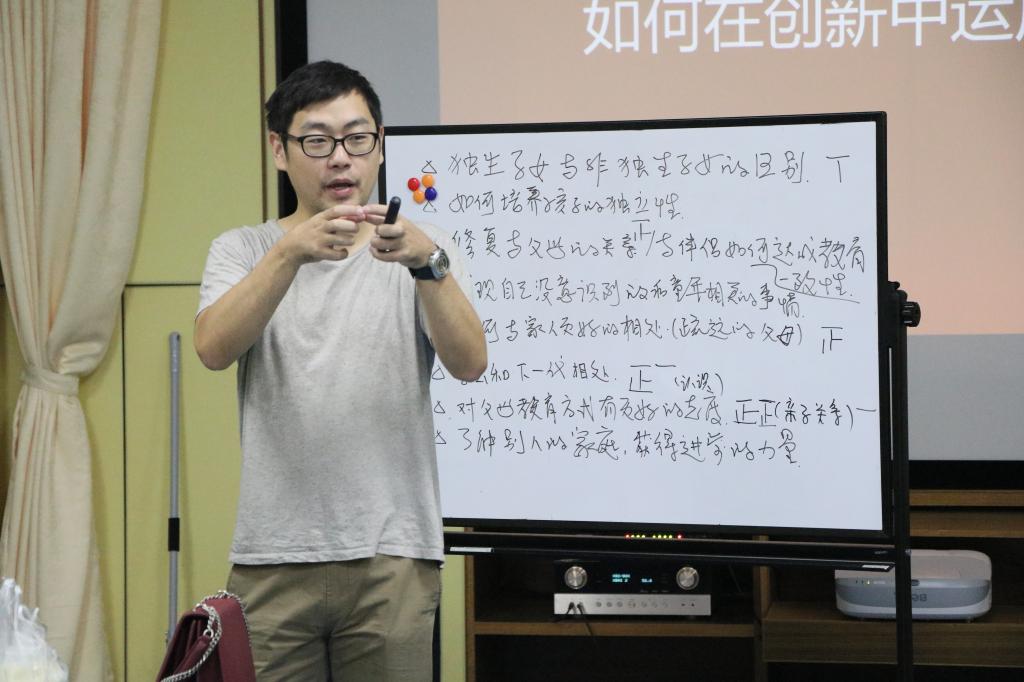 如何在创新中运
△ 独生子女与非独生子女的区别. 丅
△ 如何培养孩子的独立性.
修复与父母的关系/与伴侣如何达成教育
正
一致性.
现自己没意识到的和童年相关的事情.
何与家人良好的相处.(疏远的父母) 正
和下一代相处. 正一 (认识)
△. 对父母教育方式有良好的态度. 正正(亲子关系)一
△ 了解别人的家庭, 获得进步的力量.
BenQ